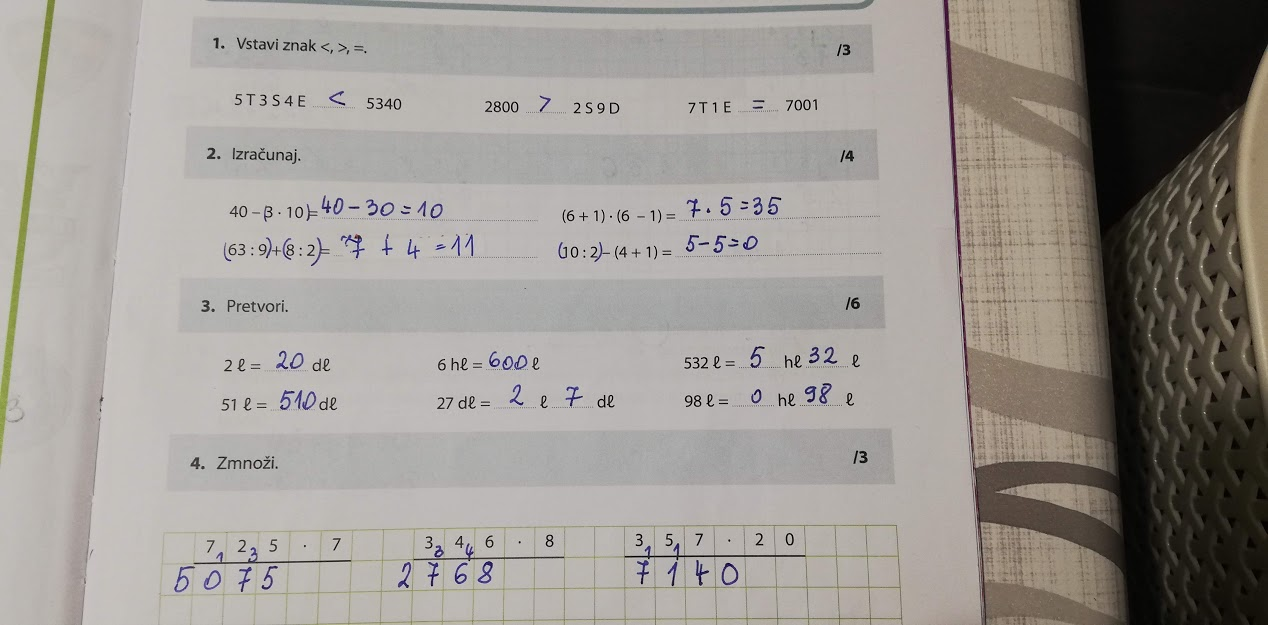 1. Vstavi znak <, >, =. /3
5 T 3 S 4 E < 5340 2800 > 2 S 9 D 7 T 1 E = 7001
2. Izračunaj. /4
40 – (3 · 10) = 40 – 30 = 10 (6 + 1) · (6 – 1) = 7 · 5 = 35
(63 : 9) + (8 : 2) = 7 + 4 = 11 (10 : 2) – (4 + 1) = 5 – 5 = 0
3. Pretvori. /6
2 ℓ = 20 dℓ 6 hℓ = 600 ℓ 532 ℓ = 5 hℓ 32 ℓ
51 ℓ = 510 dℓ 27 dℓ = 2 ℓ 7 dℓ 98 ℓ = 0 hℓ 98 ℓ
4. Zmnoži. /3
7 1 2 3 5 · 7 3 3 4 4 6 · 8 3 1 5 1 7 · 2 0
5 0 7 5 2 7 6 8 7 1 4 0